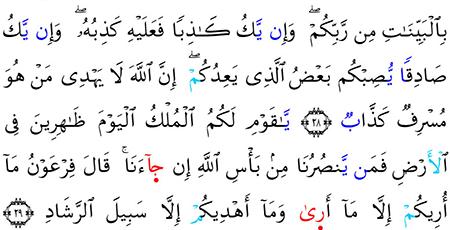 بِالْبَيِّنَاتِ مِن رَّبِّكُمْ ۖ وَإِن يَّكُ كَـٰذِبًا فَعَلَيْهِ كَذِبُهُۥ ۖ وَإِن يَّكُ
صَادِقًا يُّصِبْكُم بَعْضُ الَّذِى يَعِدُكُمْ ۖ إِنَّ اللَّهَ لَا يَهْدِى مَنْ هُوَ
مُسْرِفٌ كَذَّابٌ ﴿٢٨﴾ يَـٰقَوْمِ لَكُمُ الْمُلْكُ الْيَوْمَ ظَـٰهِرِينَ فِى
الْأَرْضِ فَمَن يَّنصُرُنَا مِنۢ بَأْسِ اللَّهِ إِن جَآءَنَا ۚ قَالَ فِرْعَوْنُ مَآ
أُرِيكُمْ إِلَّا مَآ أَرَىٰ وَمَآ أَهْدِيكُمْ إِلَّا سَبِيلَ الرَّشَادِ ﴿٢٩﴾